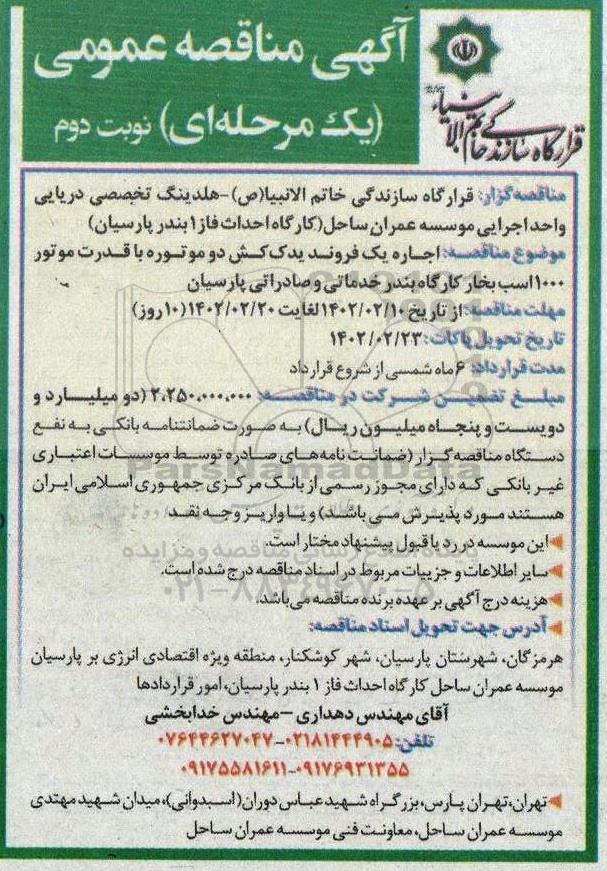 آگهی مناقصه عمومی
(یک مرحله‌ای) نوبت دوم
قرارگاه سازندگی خاتم الانبیاء
مناقصه‌گزار: قرارگاه سازندگی خاتم الانبیا(ص) -هلدینگ تخصصی دریایی
واحد اجرایی موسسه عمران ساحل(کارگاه احداث فاز ۱ بندر پارسیان)
موضوع مناقصه: اجاره یک فروند یدک‌کش دو موتوره با قدرت موتور
۱۰۰۰ اسب بخار کارگاه بندر خدماتی و صادراتی پارسیان
مهلت مناقصه: از تاریخ ۱۴۰۲/۰۲/۱۰ لغایت ۱۴۰۲/۰۲/۲۰ (۱۰ روز)
تاریخ تحویل پاکات: ۱۴۰۲/۰۲/۲۳
مدت قرارداد: ۶ ماه شمسی از شروع قرارداد
مبلغ تضمین شرکت در مناقصه: ۲،۲۵۰،۰۰۰،۰۰۰ (دو میلیارد و
دویست و پنجاه میلیون ریال) به صورت ضمانتنامه بانکی به نفع
دستگاه مناقصه‌گزار (ضمانت نامه‌های صادره توسط موسسات اعتباری
غیر بانکی که دارای مجوز رسمی از بانک مرکزی جمهوری اسلامی ایران
هستند مورد پذیرش می باشد) و یا واریز وجه نقد
این موسسه در رد یا قبول پیشنهاد مختار است.
سایر اطلاعات و جزییات مربوط در اسناد مناقصه درج شده است.
هزینه درج آگهی بر عهده برنده مناقصه می‌باشد.
آدرس جهت تحویل اسناد مناقصه:
هرمزگان، شهرستان پارسیان، شهر کوشکنار، منطقه ویژه اقتصادی انرژی بر پارسیان
موسسه عمران ساحل کارگاه احداث فاز ۱ بندر پارسیان، امور قراردادها
آقای مهندس دهداری – مهندس خدابخشی
تلفن: ۰۲۱۸۱۴۴۴۹۰۵-۰۷۶۴۴۶۲۷۰۴۷
۰۹۱۷۶۹۳۱۳۵۵-۰۹۱۷۵۵۸۱۶۱۱
تهران، تهران پارس، بزرگراه شهید عباس دوران(اسبدوانی)، میدان شهید مهتدی
موسسه عمران ساحل، معاونت فنی موسسه عمران ساحل
ParsNamadData